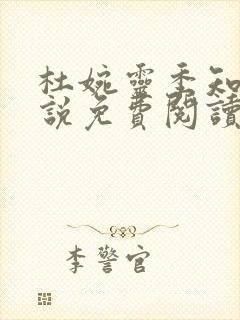 杜婉靈季知
說免費閱讀
李警官